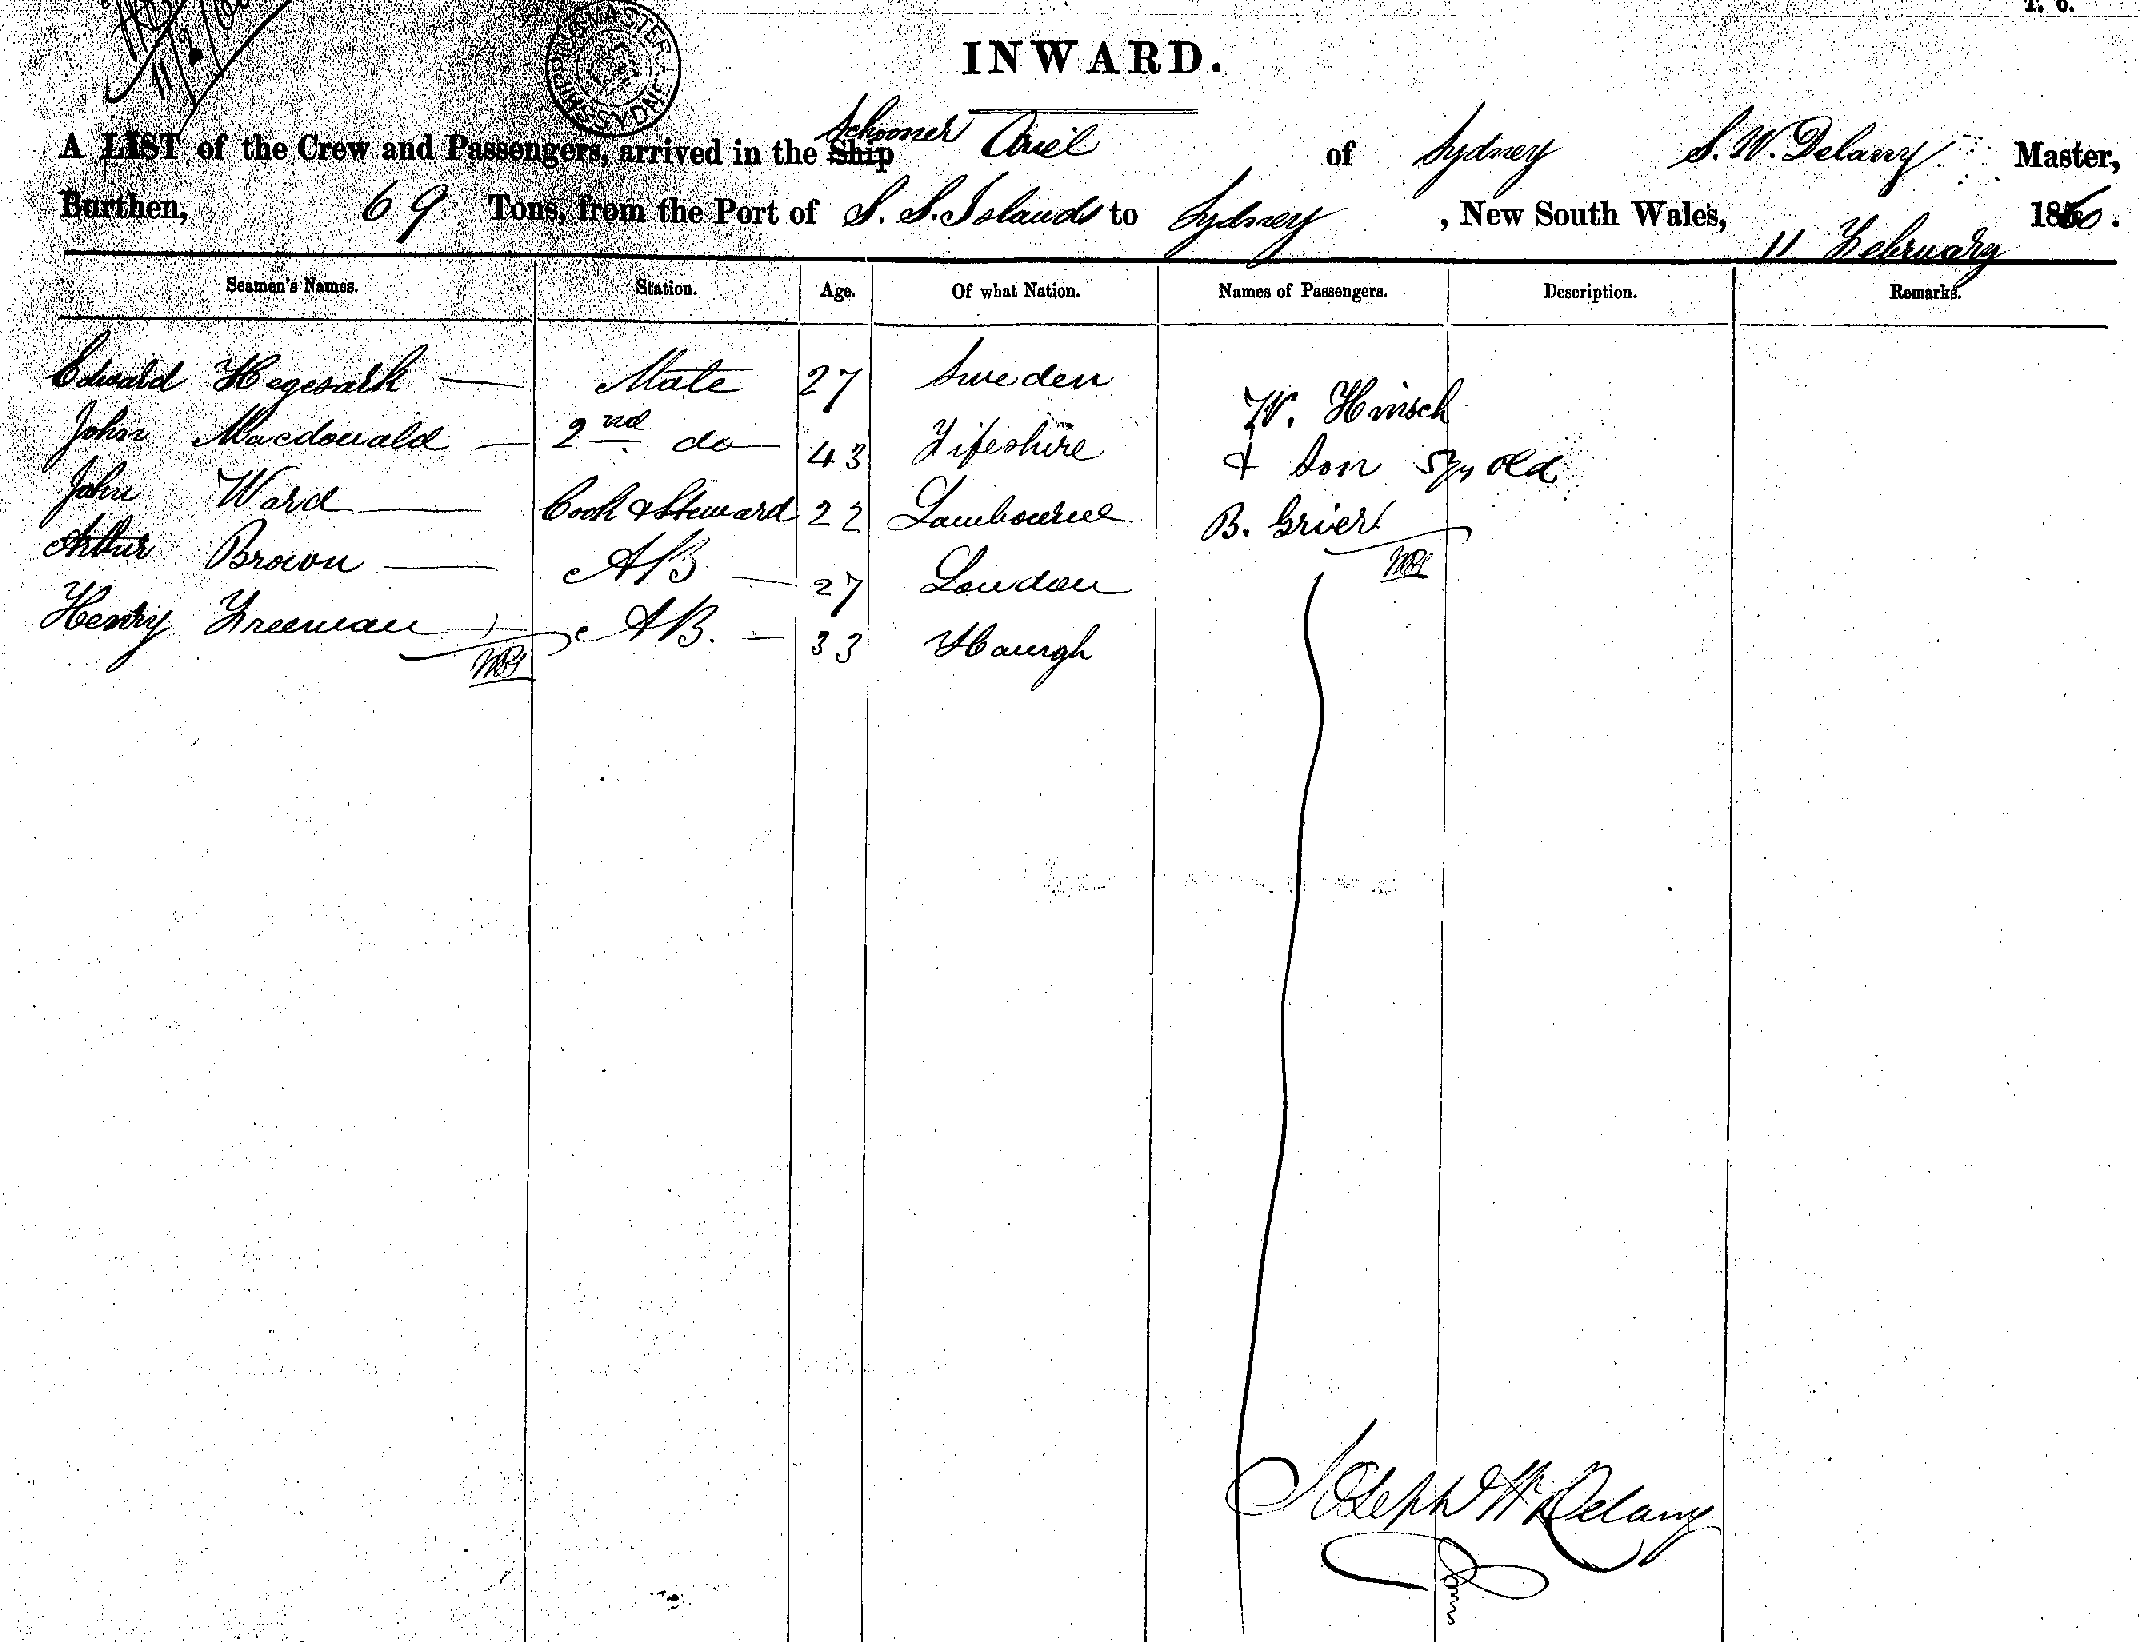 INWARD.
A LIST of the Crew and Passengers, arrived in the Ship Schooner Ariel of Sydney S. W. Delany Master,
Burthen, 69 Tons, from the Port of S. S. Islands to Sydney, New South Wales, 11 February 186
Seamen's Names. Station. Age. Of what Nation. Names of Passengers. Description. Remarks.
Edward Hagesath — Mate 27 Sweden
W. Hinsch
John Macdonald — 2nd do — 43 Fifeshire
& Son 5 yrs old
John Ward — Cook & Steward 22 Lambourne
B. Grier
Arthur Brown — AB — 27 London
Henry Freeman AB. — 33
Joseph W Delany